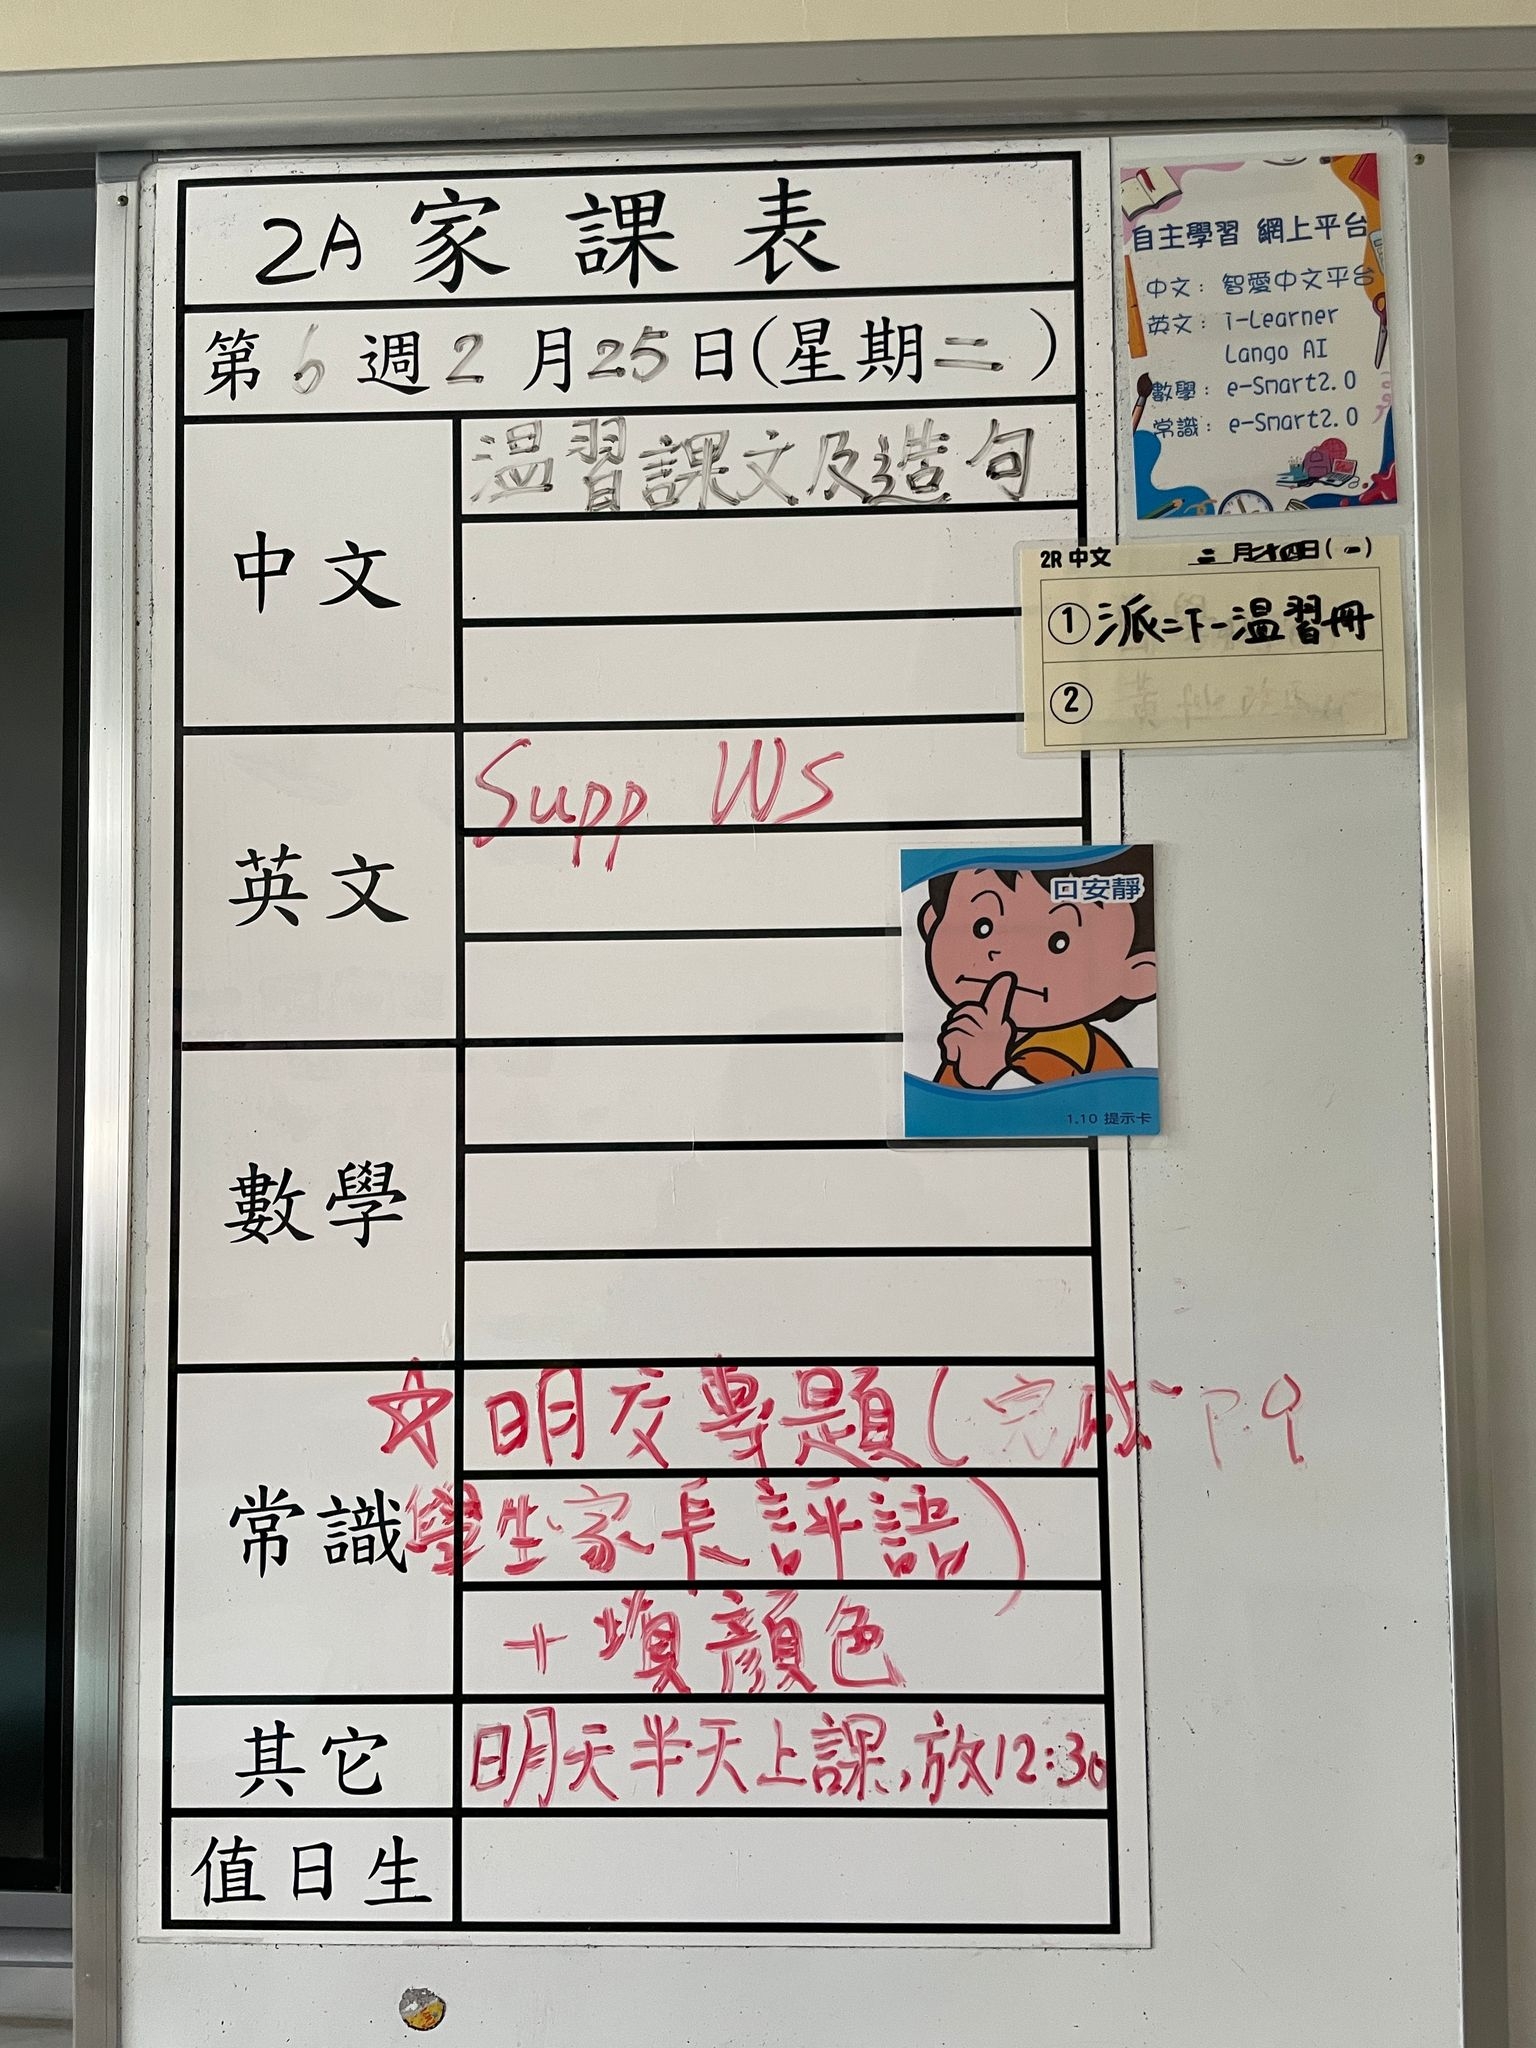 2A 家課表
第 6 週 2 月 25 日(星期二)
中文
温習課文及造句
英文
Supp WS
數學
常識
☆明交專題(完成 P9
學生家長評語)
+填顏色
其它
明天半天上課,放12:30
值日生
自主學習 網上平台
中文: 智愛中文平台
英文: i-Learner
Lango AI
數學: e-Smart2.0
常識: e-Smart2.0
2R 中文 二月廿四日(一)
① 派二下一温習冊
②
口安靜
1.10 提示卡